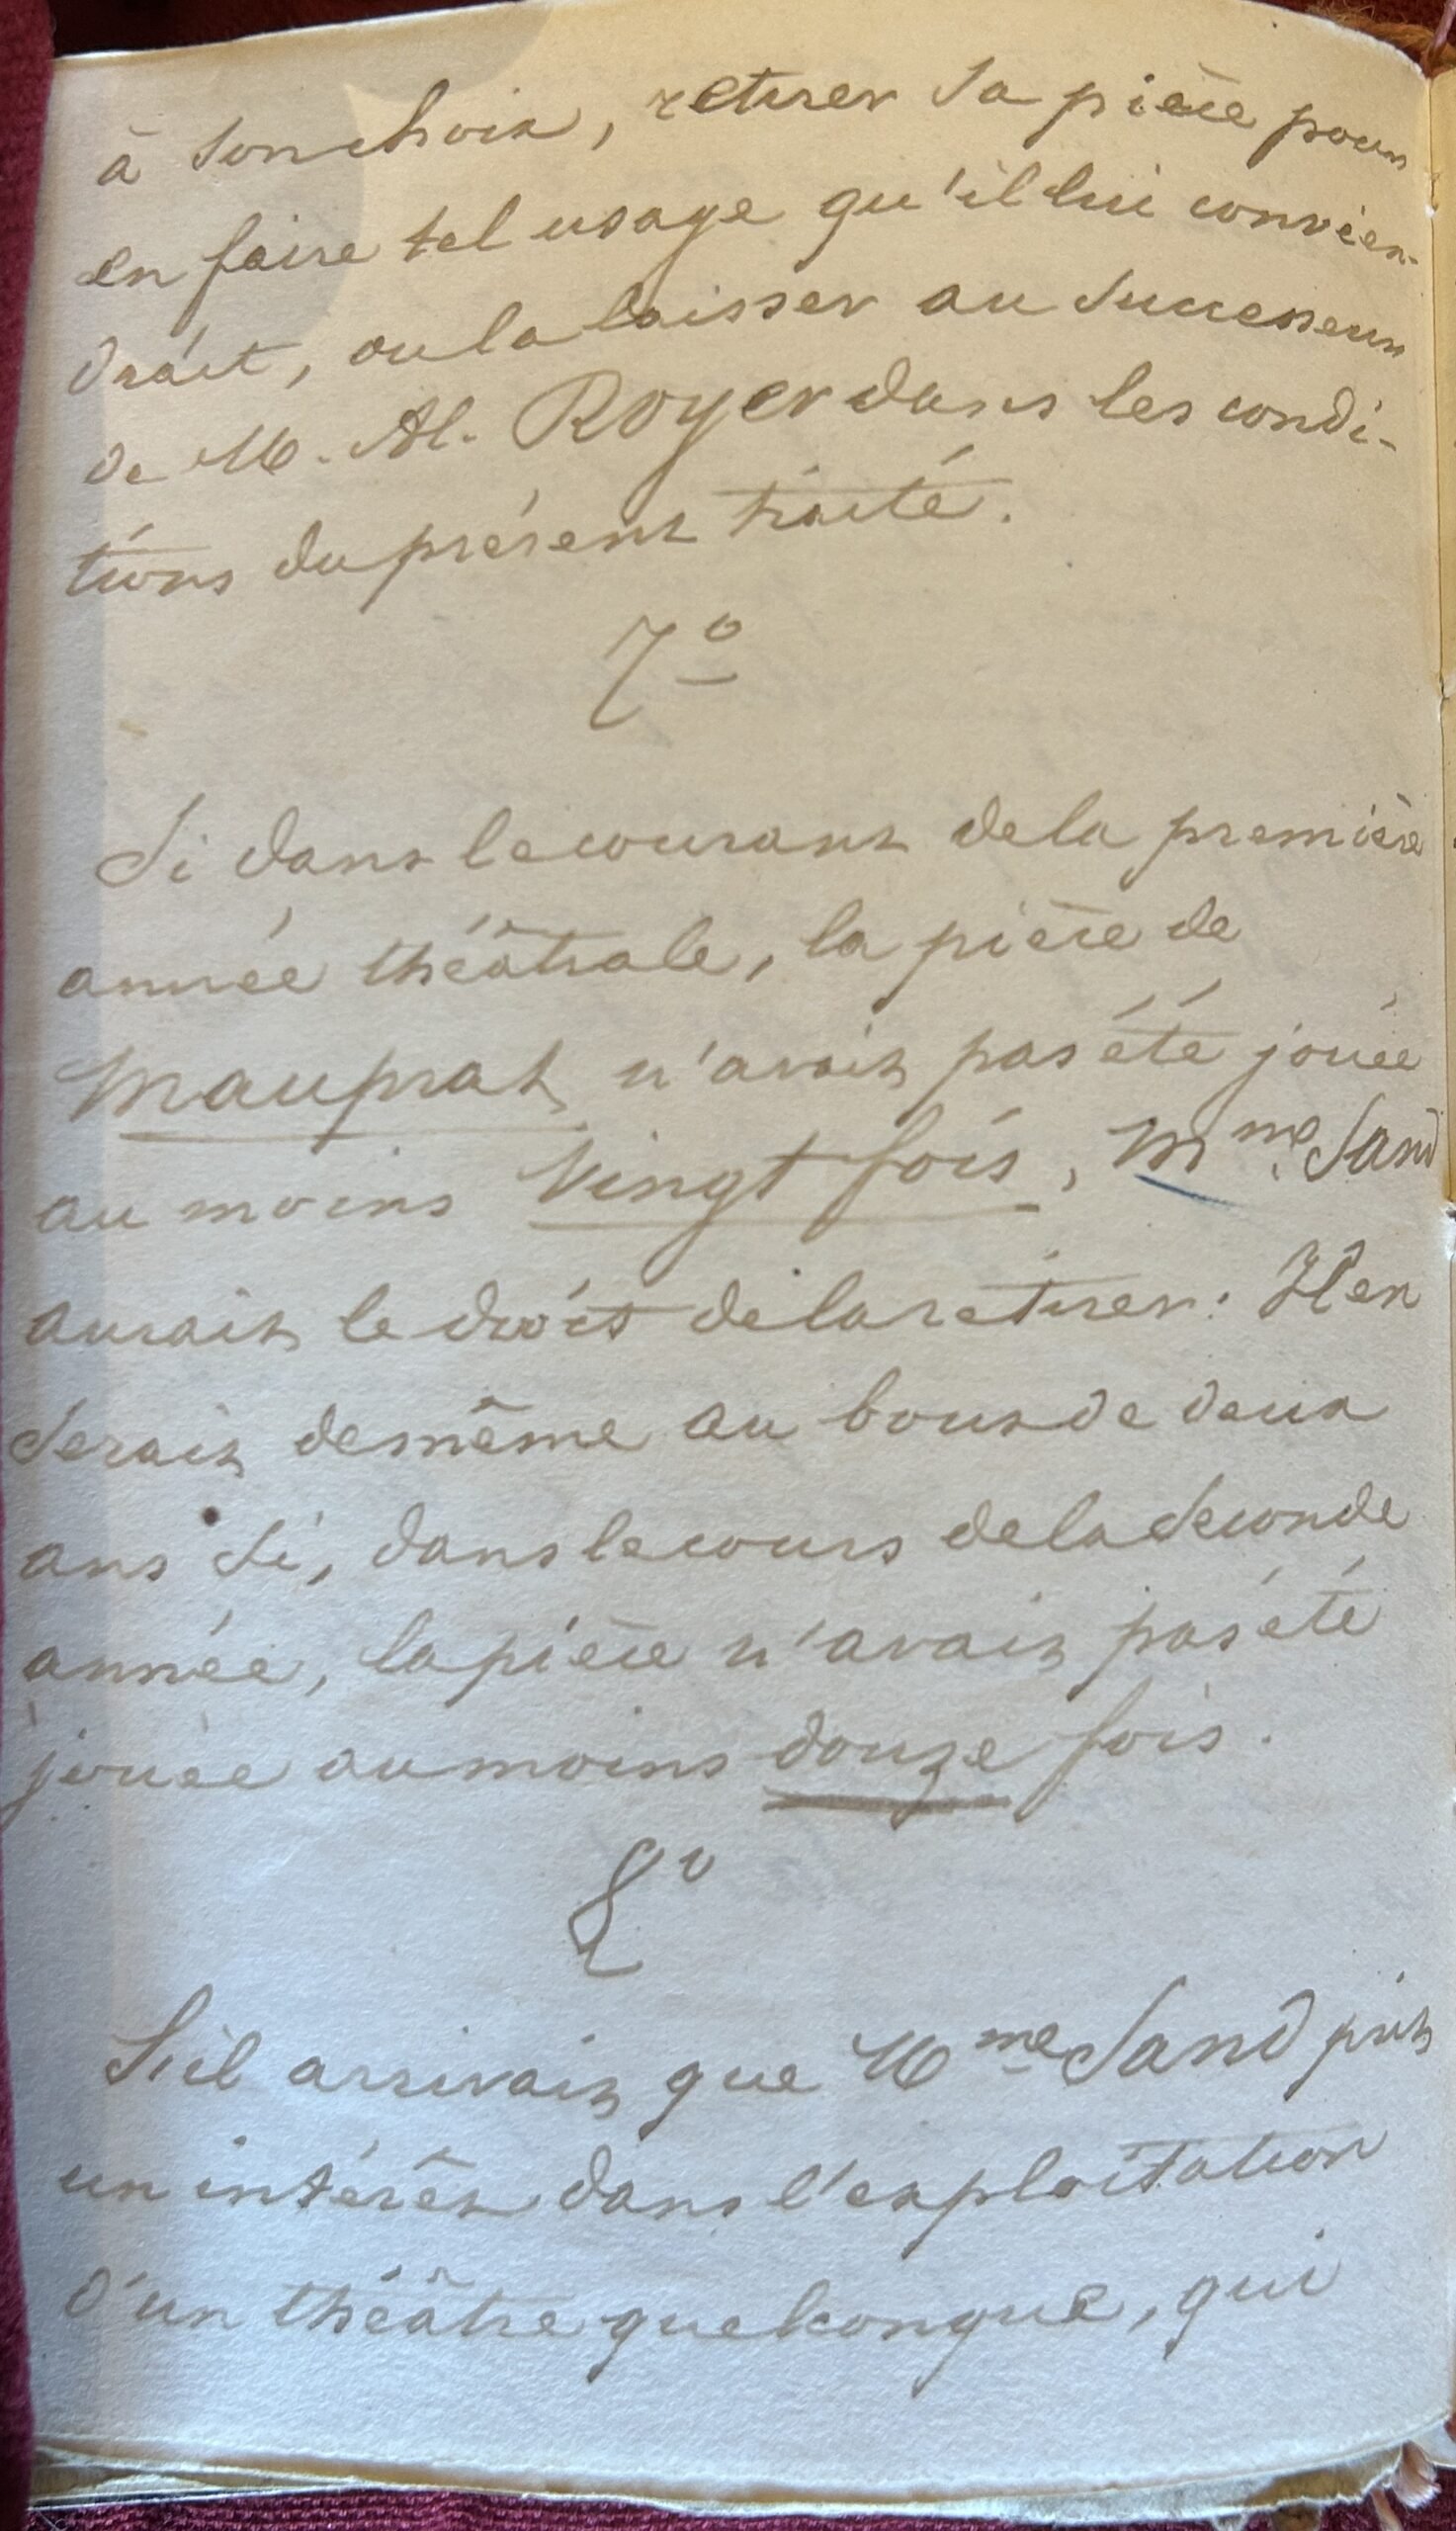 à son choix, retirer sa pièce pour
en faire tel usage qu'il lui convien-
drait, ou la laisser au successeur
de M. Al. Royer dans les condi-
tions du présent traité.
7º
Si dans le courant de la première
année théâtrale, la pièce de
Mauprat n'avait pas été jouée
au moins Vingt fois, Mme Sand
aurait le droit de la retirer : Il en
serait de même au bout de deux
ans si, dans le cours de la seconde
année, la pièce n'avait pas été
jouée au moins douze fois.
8º
S'il arrivait que Mme Sand prit
un intérêt dans l'exploitation
d'un théâtre quelconque, qui